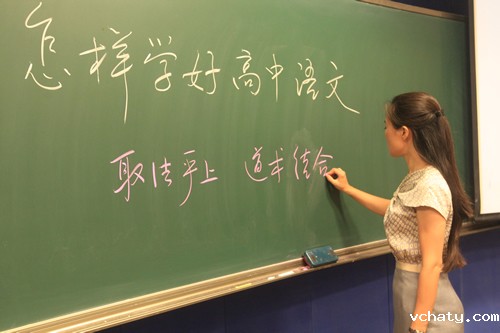 怎样学好高中语文
取法乎上 道术结合
vchaty.com